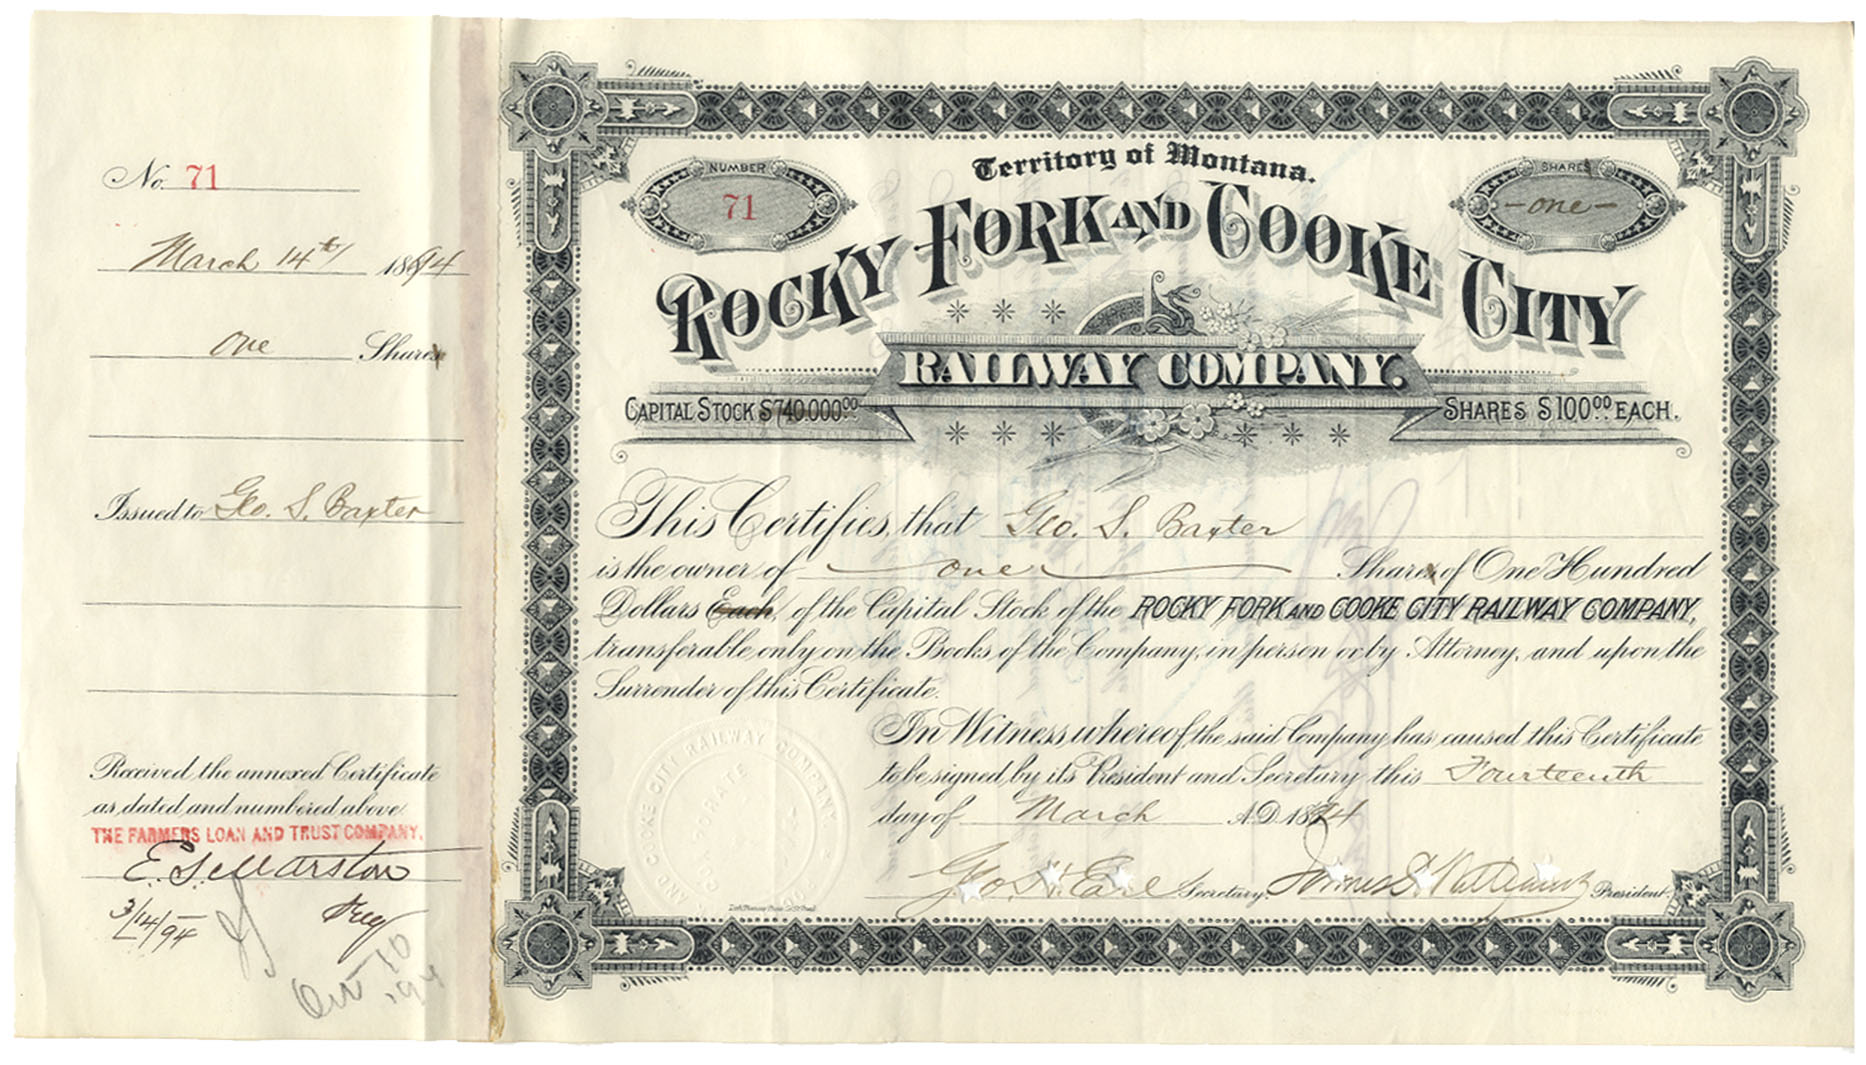 No. 71
March 14th 1894
one Shares
Issued to Geo. S. Baxter
Received the annexed Certificate
as dated and numbered above.
THE FARMERS LOAN AND TRUST COMPANY.
E. S. Marston
3/14/94
10
NUMBER
71
Territory of Montana.
SHARES
-one-
ROCKY FORK AND COOKE CITY
RAILWAY COMPANY.
CAPITAL STOCK $740.000.00
SHARES $100.00 EACH.
This Certifies, that Geo. S. Baxter
is the owner of one Shares of One Hundred
Dollars Each, of the Capital Stock of the ROCKY FORK AND COOKE CITY RAILWAY COMPANY,
transferable only on the Books of the Company, in person or by Attorney, and upon the
Surrender of this Certificate.
In Witness whereof, the said Company has caused this Certificate
to be signed by its President and Secretary this Fourteenth
day of March A.D. 1894
Geo. H. Earl Secretary. President.
AND COOKE CITY RAILWAY COMPANY
CORPORATE